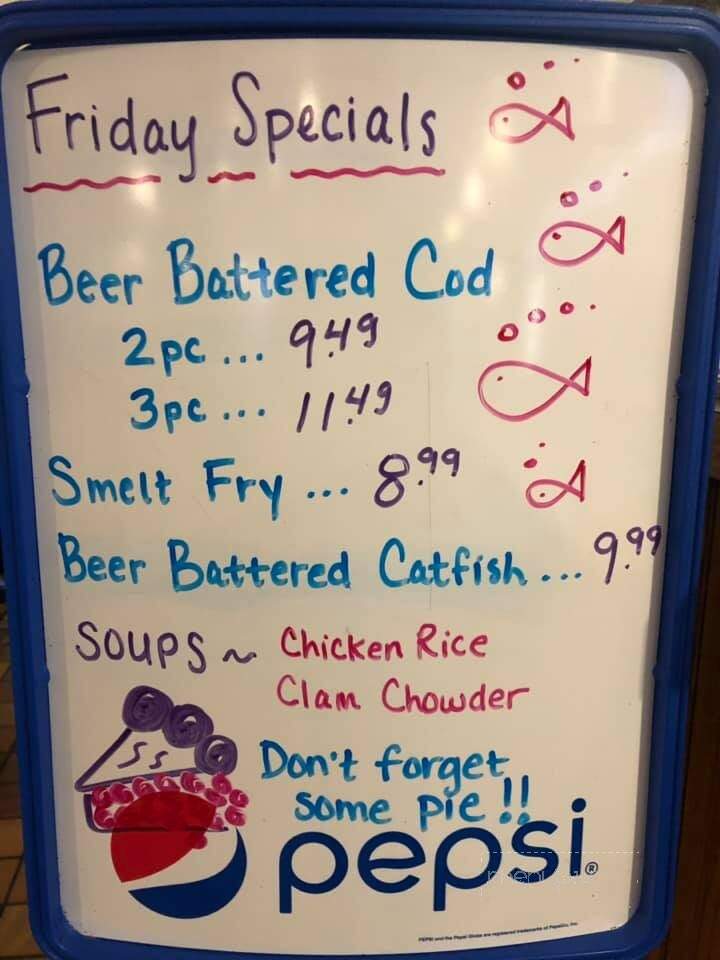 Friday Specials
Beer Battered Cod
2pc ... 9.49
3pc ... 11.49
Smelt Fry ... 8.99
Beer Battered Catfish ... 9.99
SOUPS ~ Chicken Rice
Clam Chowder
Don't forget
some pie !!
pepsi®
PEPSI and the Pepsi Globe are registered trademarks of PepsiCo, Inc.